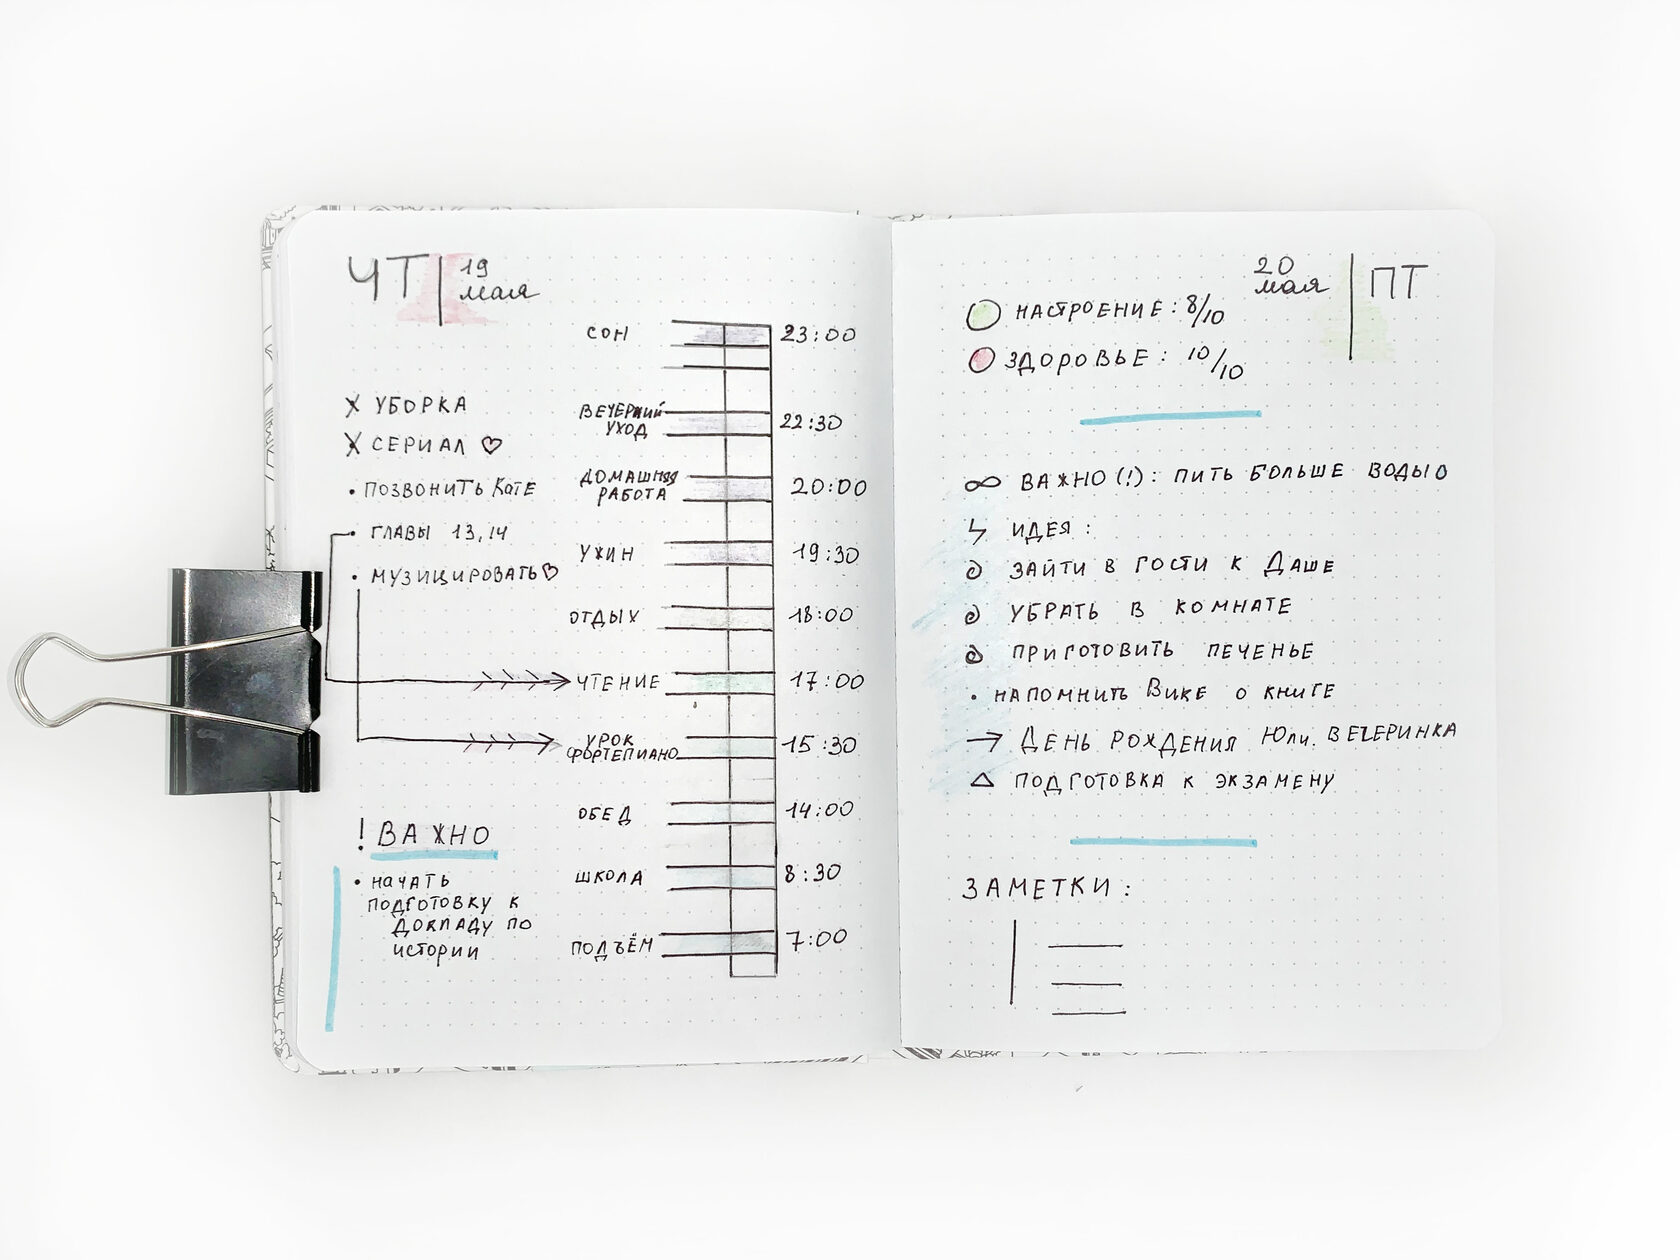 ЧТ 19
мая
× УБОРКА
× СЕРИАЛ ♡
• ПОЗВОНИТЬ КАТЕ
• ГЛАВЫ 13, 14
• МУЗИЦИРОВАТЬ ♡
! ВАЖНО
• НАЧАТЬ
ПОДГОТОВКУ К
ДОКЛАДУ ПО
ИСТОРИИ
СОН 23:00
ВЕЧЕРНИЙ
УХОД 22:30
ДОМАШНЯЯ
РАБОТА 20:00
УЖИН 19:30
ОТДЫХ 18:00
ЧТЕНИЕ 17:00
УРОК
ФОРТЕПИАНО 15:30
ОБЕД 14:00
ШКОЛА 8:30
ПОДЪЁМ 7:00
20
мая ПТ
НАСТРОЕНИЕ: 8/10
ЗДОРОВЬЕ: 10/10
∞ ВАЖНО (!): ПИТЬ БОЛЬШЕ ВОДЫ
ИДЕЯ:
ЗАЙТИ В ГОСТИ К ДАШЕ
УБРАТЬ В КОМНАТЕ
ПРИГОТОВИТЬ ПЕЧЕНЬЕ
• НАПОМНИТЬ ВИКЕ О КНИГЕ
→ ДЕНЬ РОЖДЕНИЯ ЮЛИ. ВЕЧЕРИНКА
△ ПОДГОТОВКА К ЭКЗАМЕНУ
ЗАМЕТКИ: